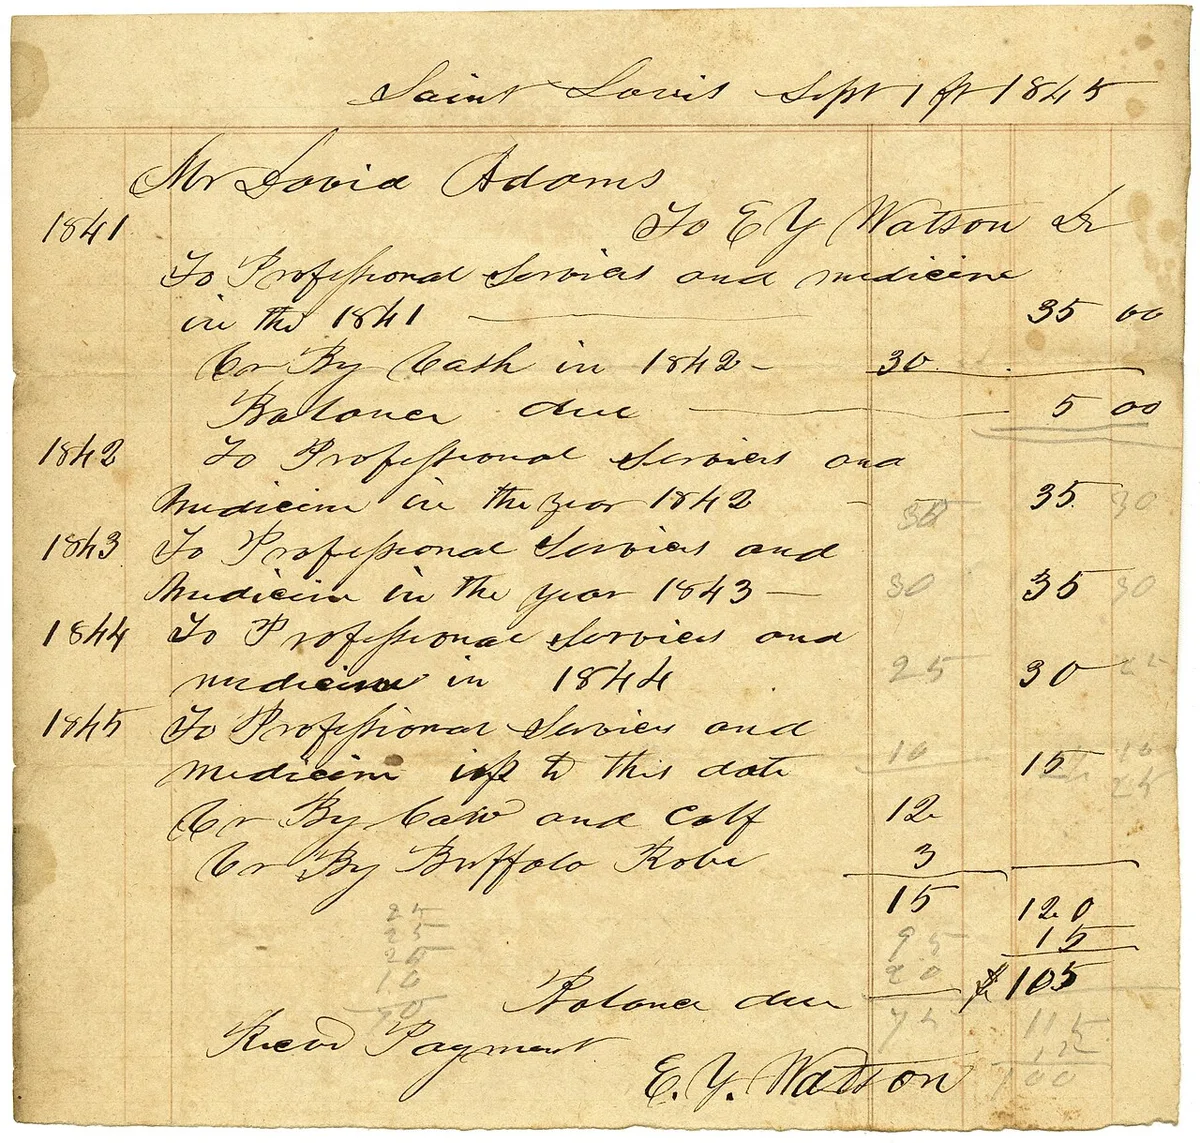 Saint Louis Sept 1st 1845
Mr David Adams
1841 To E Y Watson Dr
To Professional Services and medicine
in the 1841 35 00
Cr By Cash in 1842 30
Balance due 5 00
1842 To Professional Services and
Medicine in the year 1842 35 35 30
1843 To Professional Services and
Medicine in the year 1843 30 35 30
1844 To Professional Services and
medicine in 1844 25 30 25
1845 To Professional Services and
medicine up to this date 10 15 10
25
Cr By Cow and Calf 12
Cr By Buffalo Robe 3
15 120
25 95 15
25
20 20
10
70
Balance due $105
75 115
Recd Payment
E. Y. Watson 100